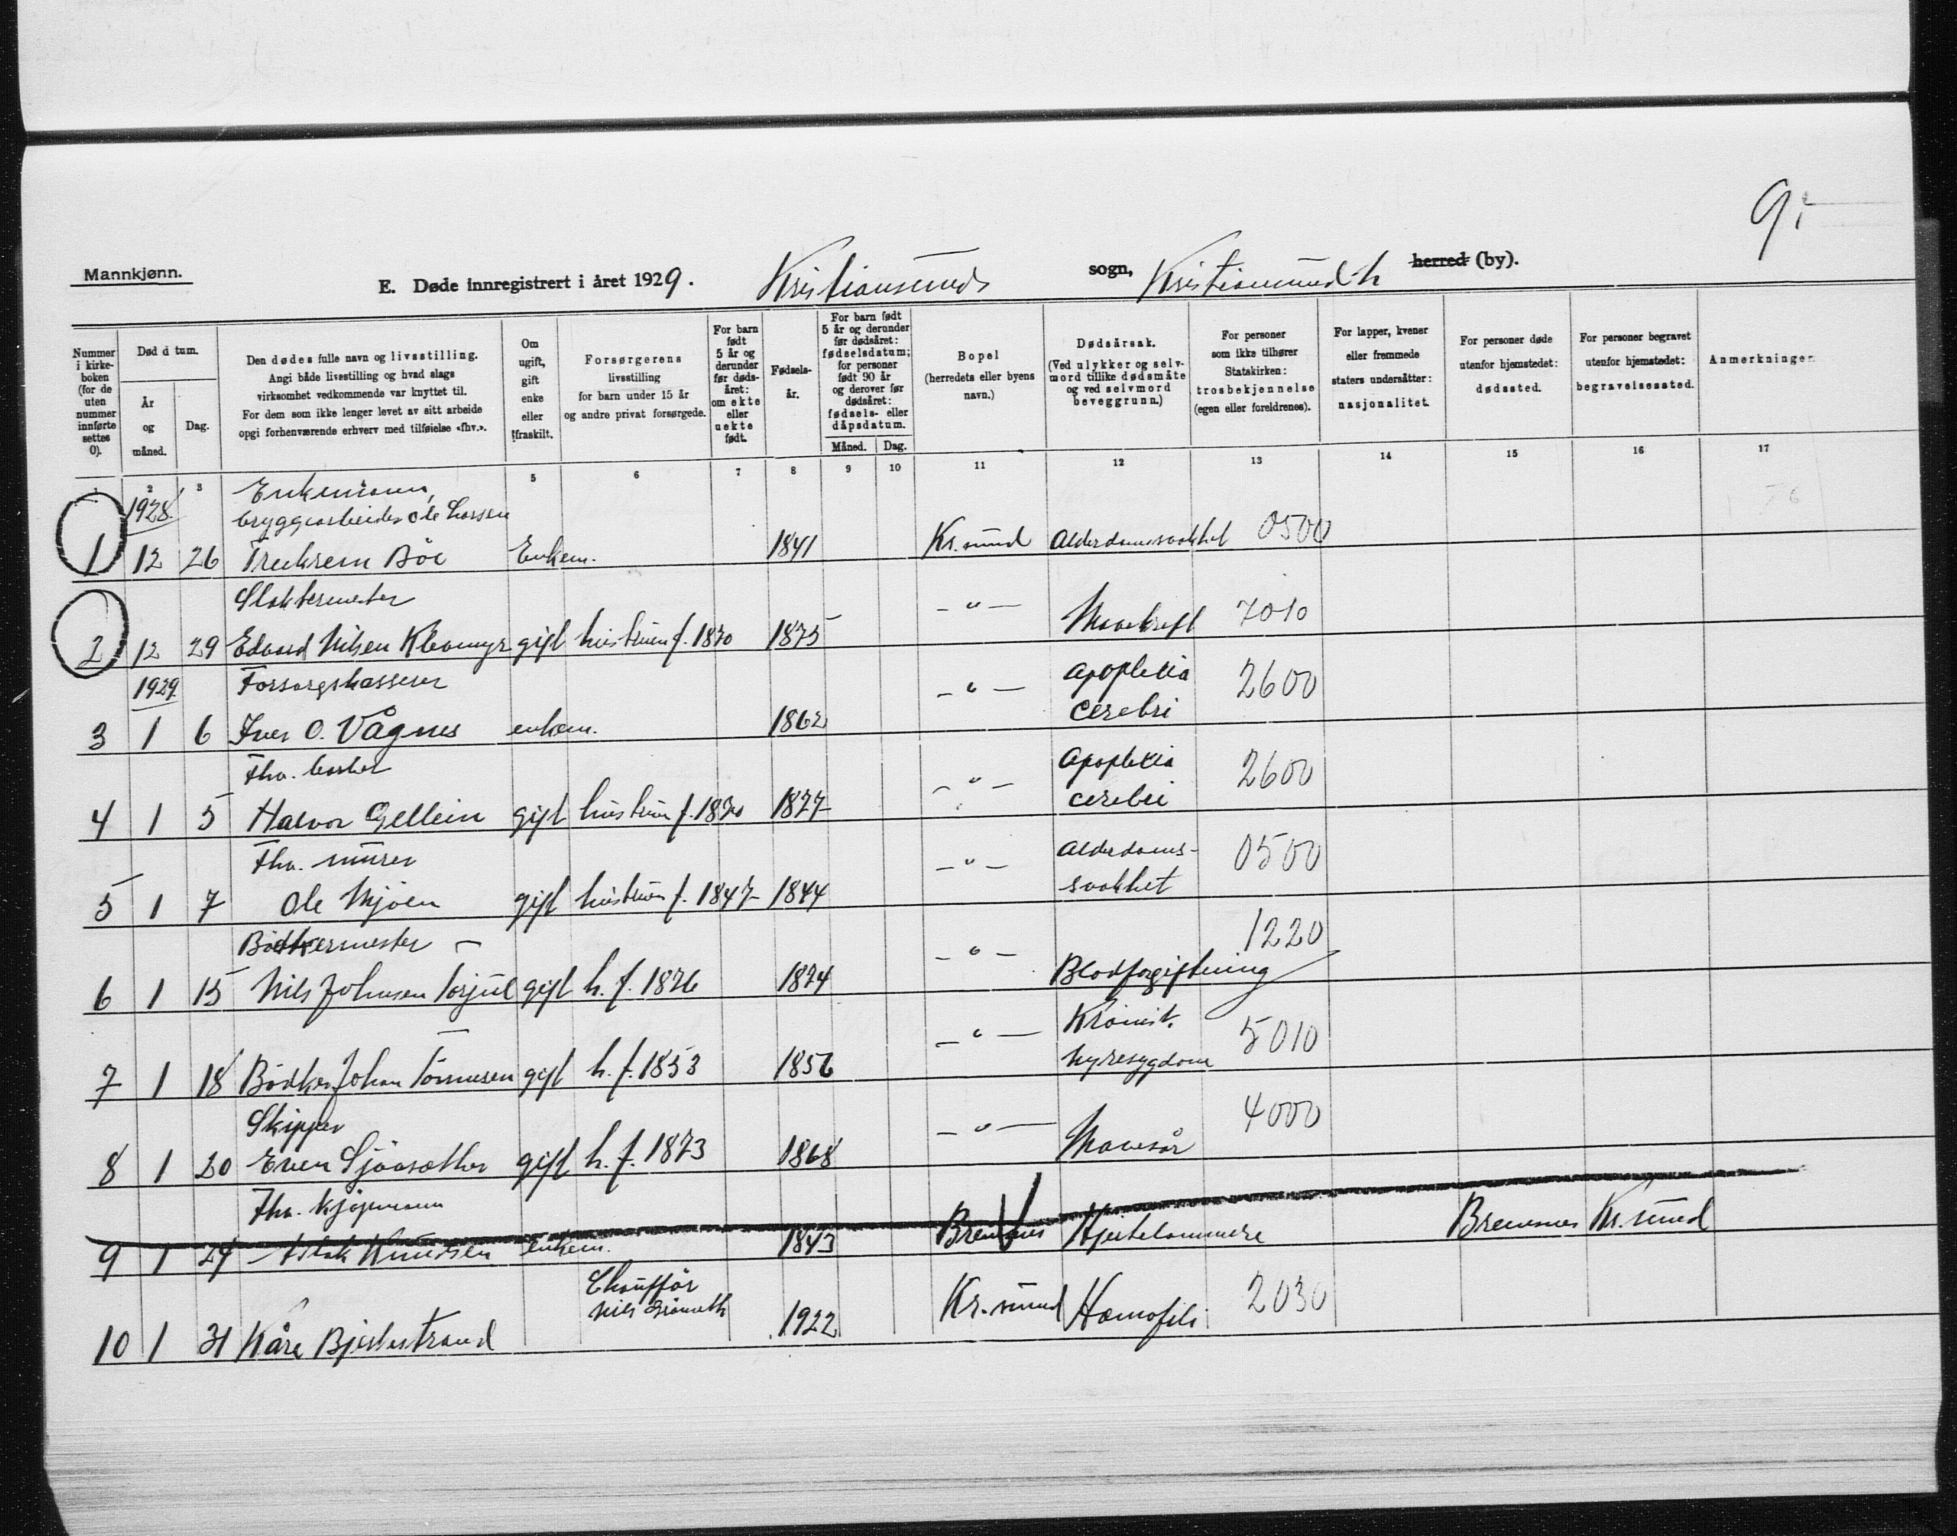 9.
Mannkjønn.
E. Døde innregistrert i året 1929. Kristiansunds sogn, Kristiansund N herred (by).
Nummer i kirkeboken (for de uten nummer innførte settes 0).
Død d tum.
År og måned.
Dag.
Den dødes fulle navn og livsstilling.
Angi både livsstilling og hvad slags
virksomhet vedkommende var knyttet til.
For dem som ikke lenger levet av sitt arbeide
opgi forhenværende erhverv med tilføielse «fhv.».
Om ugift, gift enke eller fraskilt.
Forsørgerens
livsstilling
for barn under 15 år
og andre privat forsørgede.
For barn født 5 år og derunder før dødsåret: om ekte eller uekte født.
Fødselsår.
For barn født 5 år og derunder før dødsåret: fødselsdatum; for personer født 90 år og derover før dødsåret: fødsels- eller dåpsdatum.
Måned. Dag.
Bopel
(herredets eller byens navn.)
Dødsårsak.
(Ved ulykker og selvmord tillike dødsmåte og ved selvmord beveggrunn.)
For personer
som ikke tilhører
Statskirken:
trosbekjennelse
(egen eller foreldrenes).
For lapper, kvener
eller fremmede
staters undersåtter:
nasjonalitet.
For personer døde
utenfor hjemstedet:
dødssted.
For personer begravet
utenfor hjemstedet:
begravelsessted.
Anmerkninger.
1 2 3 5 6 7 8 9 10 11 12 13 14 15 16 17
1928 Enkemann,
bryggearbeider Ole Larsen
1 12 26 Trekrem Böe Enkem. 1841 Kr.sund Alderdomssvakhet 0500
Slaktermester
2 12 29 Edvard Nilsen Klevmyr gift hustruen f. 1870 1875 - " - Mavekreft 7010
1929 Forsorgskasserer
3 1 6 Iver O. Vågnes enkem. 1862 - " - Apoplexia cerebri 2600
Fhv.
4 1 5 Halvor Gellein gift hustru f. 1870 1877 - " - Apoplexia cerebri 2600
Fhv. murer
5 1 7 Ole Mjöen gift hustruen f. 1847 1844 - " - Alderdoms-svakhet 0500
Bödkermester
6 1 15 Nils Johnsen Torjul gift h. f. 1876 1874 - " - Blodforgiftning 1220
7 1 18 Bödker Johan Tönnesen gift h. f. 1853 1856 - " - Kronisk nyresygdom 5010
Skipper
8 1 20 Even Sjöasæther gift h. f. 1873 1868 - " - Mavesår 4000
Fhv. kjöpmann
9 1 24 Aslak Knudsen enkem. 1843 Bremsnes Hjertelammelse Bremsnes Kr.sund
10 1 31 Kåre Bjerkestrand Chaufför Nils 1922 Kr.sund Hæmofili 2030